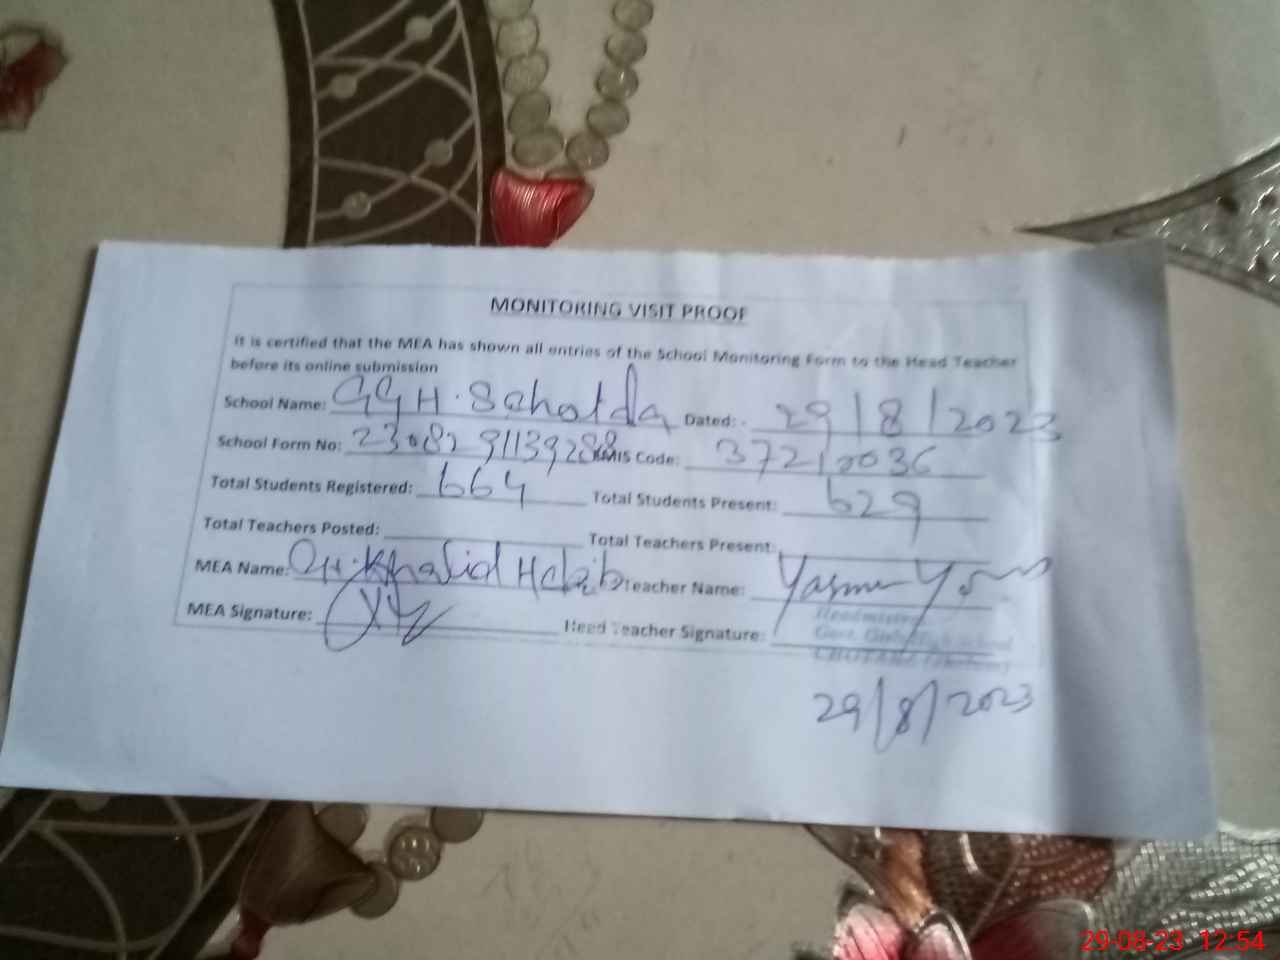 MONITORING VISIT PROOF
It is certified that the MEA has shown all entries of the School Monitoring Form to the Head Teacher
before its online submission
School Name: GGH. Dated: 29/8/2023
School Form No: 2308291139288 EMIS Code: 37210036
Total Students Registered: 664 Total Students Present: 629
Total Teachers Posted: Total Teachers Present:
MEA Name: CH. Khalid Habib Teacher Name:
MEA Signature: Head Teacher Signature:
Headmistress
Govt. Girls High School
29/8/2023
29-08-23 12:54